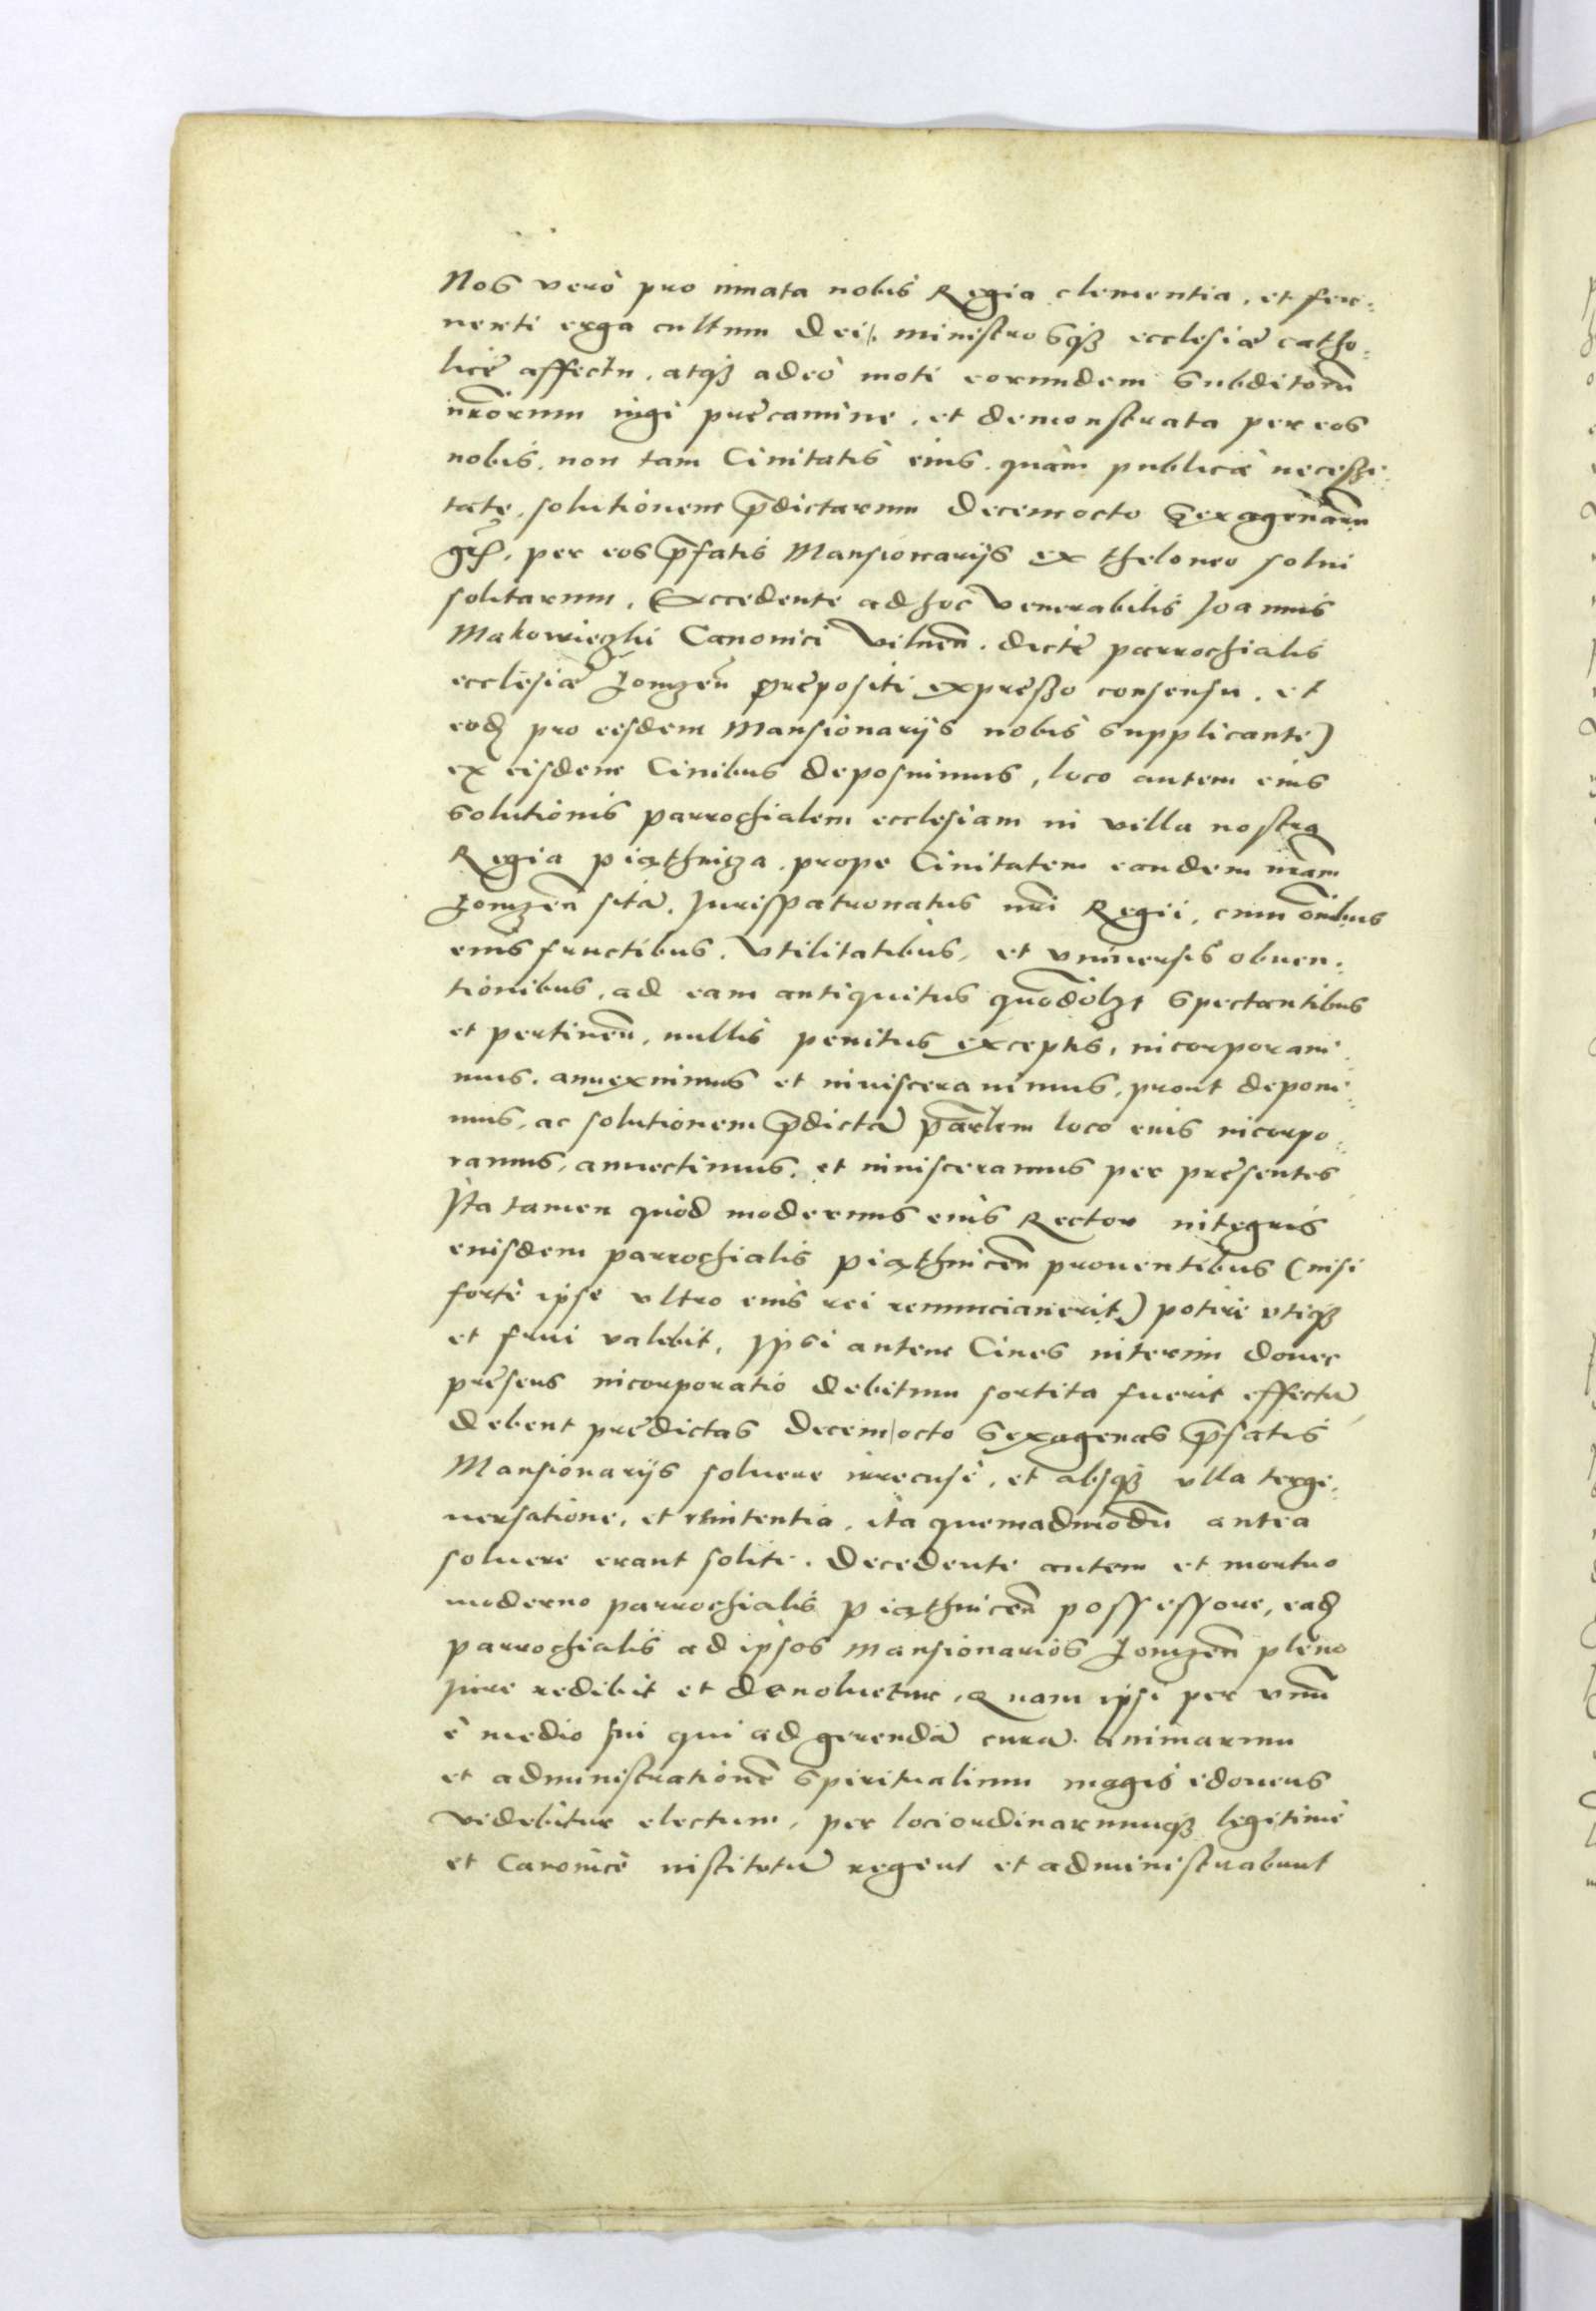 Nos verò pro innata nobis Regia clementia, et fer:
uenti erga cultum Dei, ministrosq̃ȝ ecclesiæ catho:
licę affectu, atqȝ adeò moti eorundem Subditorũ
nr̃orum iugi pręcamine, et demonstrata per eos
nobis, non tam Ciuitatis eius, quàm publicæ neceßi:
tate, solutionem p̃dictarum Decemocto Sexagenarũ
gr̃, per eos p̃fatis Mansionarijs ex theloneo solui
solitarum, Accedente ad hoc Venerabilis Joannis
Makowieczki Canonici Vilneñ. dictę parrochialis
ecclesiæ Lomzeñ prępositi expreßo consensu, et
eod pro eisdem Mansionarijs nobis Supplicante)
ex eisdem Ciuibus deposuimus, loco autem eius
Solutionis parrochialem ecclesiam in villa nostra
Regia piąthnicza, prope Ciuitatem eandem nr̃am
Lomzeñ sitã, Jurispatronatus nr̃i Regii, cum oñibus
eius fructibus, Vtilitatibus, et vniuersis obuen:
tionibus, ad eam antiquitus quomõdolȝt Spectantibus
et pertineñ, nullis penitus exceptis, incorporaui:
mus, annexuimus et inuiscerauimus, prout deponi:
mus, ac solutionem p̃dictã p̃ar̃lem loco eius incorpo:
ramus, annectimus, et inuisceramus per pręsentes
Jta tamen quòd modernus eius Rector integris
eiusdem parrochialis piąthniceñ prouentibus (nisi
fortè ipse vltro eius rei renunciauerit) potiri vtiqȝ
et frui valebit, Jpsi autem Ciues interim donec
pręsens incorporatio debitum sortita fuerit effectũ
debent prędictas Decem octo Sexagenas p̃fatis
Mansionarijs soluere irrecusè, et absqȝ vlla tergi:
uersatione, et renitentia, ita quemadmodũ antea
soluere erant soliti. Decedente autem et mortuo
moderno parrochialis piąthniceñ possessore, ead
parrochialis ad ipsos Mansionarios Lomzeñ pleno
jure redibit et deuoluetur, Quam ipsi per vnũ
è medio sui qui ad gerendã curã animarum
et administrationẽ Spiritualium magis idoneus
videbitur electum, per lociordinariumqȝ legitimè
et Canonicè institutũ regent et administrabunt